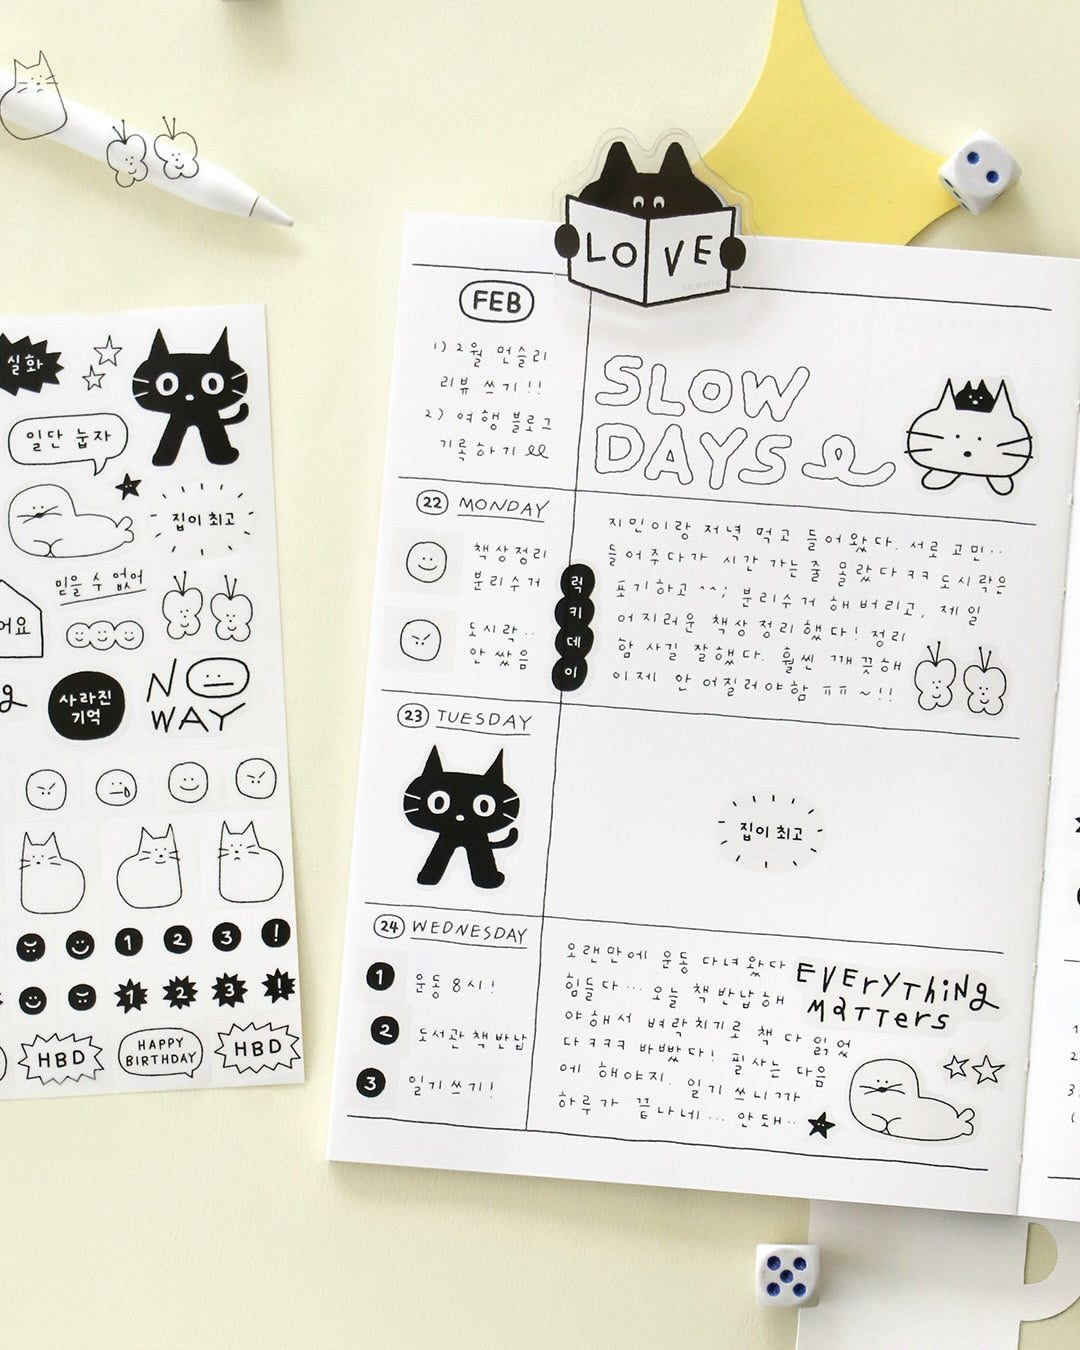 실화
일단 눕자
집이 최고
믿을 수 없어
어요
사라진
기억
NO
WAY
1 2 3 !
1 2 3 !
HBD
HAPPY
BIRTHDAY
HBD
LOVE
ICONIC
FEB
1) 2월 먼슬리
리뷰 쓰기!!
2) 여행 블로그
기록하기
SLOW
DAYS
22 MONDAY
책상정리
분리수거
도시락..
안 쌌음
럭
키
데
이
지민이랑 저녁 먹고 들어왔다. 서로 고민..
들어주다가 시간 가는 줄 몰랐다ㅋㅋ 도시락은
포기하고 ^^; 분리수거 해 버리고, 제일
어지러운 책상 정리했다! 정리
함 사길 잘했다. 훨씬 깨끗해
이제 안 어질러야함 ㅠㅠ~!!
23 TUESDAY
집이 최고
24 WEDNESDAY
1 운동 8시!
2 도서관 책 반납
3 일기쓰기!
오랜만에 운동 다녀왔다
힘들다... 오늘 책 반납해
야 해서 벼락치기로 책 다 읽었
다ㅋㅋㅋ 바빴다! 필사는 다음
에 해야지. 일기 쓰니까
하루가 끝나네... 안돼..
EVErYTHiNg
MaTTers